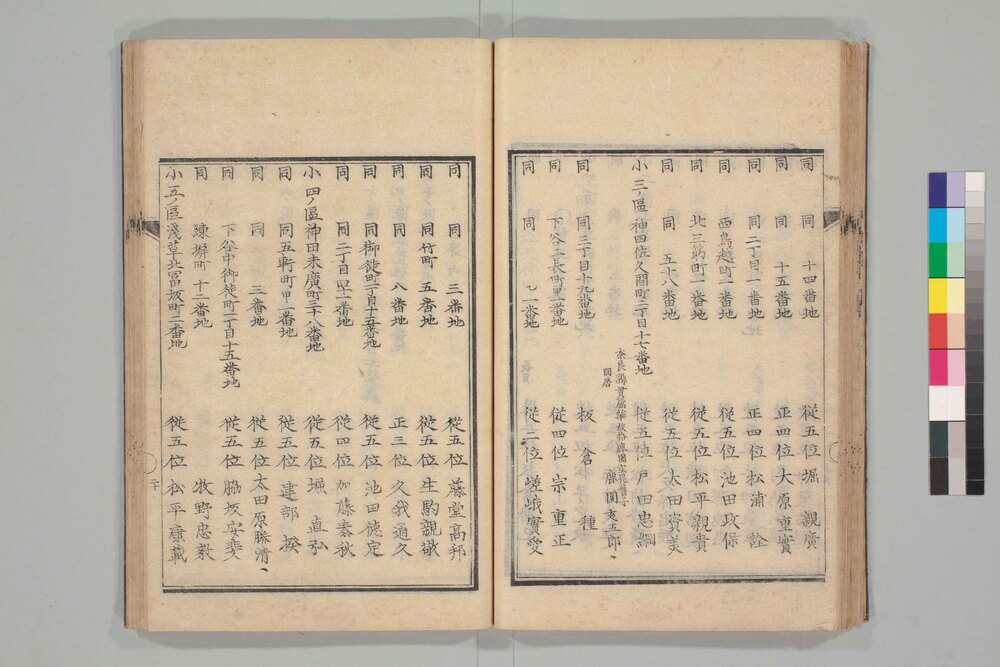 同 同 十四番地 従五位 堀 親廣
同 同 十五番地 正四位 大原重實
同 同二丁目一番地 正四位 松浦 詮
同 西鳥越町一番地 従五位 池田政保
同 北三筋町一番地 従五位 松平親貴
同 同 五十八番地 従五位 太田資美
小三ノ區 神田佐久間町二丁目十七番地 従五位 戸田忠綱
同居 鹿園亥五郎
同 同三丁目十九番地 板倉 種
同 下谷二長町 番地 従四位 宗 重正
同 同 番地 従二位 嵯峨實愛
同 同 三番地 従五位 藤堂高邦
同 同竹町 五番地 従五位 生駒親敬
同 同 八番地 正三位 久我通久
同 同御徒町一丁目十五番地 従五位 池田徳定
同 同二丁目 一番地 従四位 加藤泰秋
小四ノ區 神田末廣町三十八番地 従五位 堀 直弘
同 同五軒町甲一番地 従五位 建部 揆
同 同 三番地 従五位 太田原勝清
同 下谷中御徒町一丁目十五番地 従五位 脇坂安斐
同 練塀町 十二番地 牧野忠毅
小五ノ區 淺草北冨坂町二番地 従五位 松平康載
二十